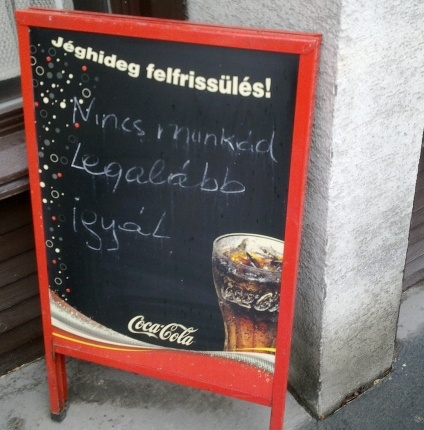 Jéghideg felfrissülés!
Nincs munkád
Legalább
igyál
Coca-Cola
Coca-Cola